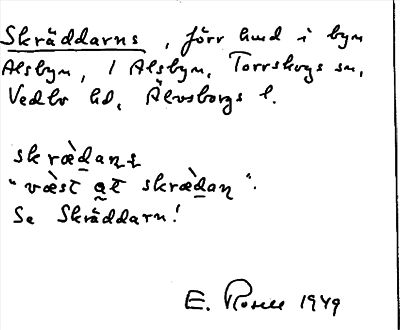 Skräddarns, förr lund i byn
Alsbyn, 1 Alsbyn, Torrskogs sn,
Vedbo hd, Älvsborgs l.
skræ̀daṇṣ
"væ̀st a̰t skræ̀daṇ".
Se Skräddarn!
E. Rosell 1949